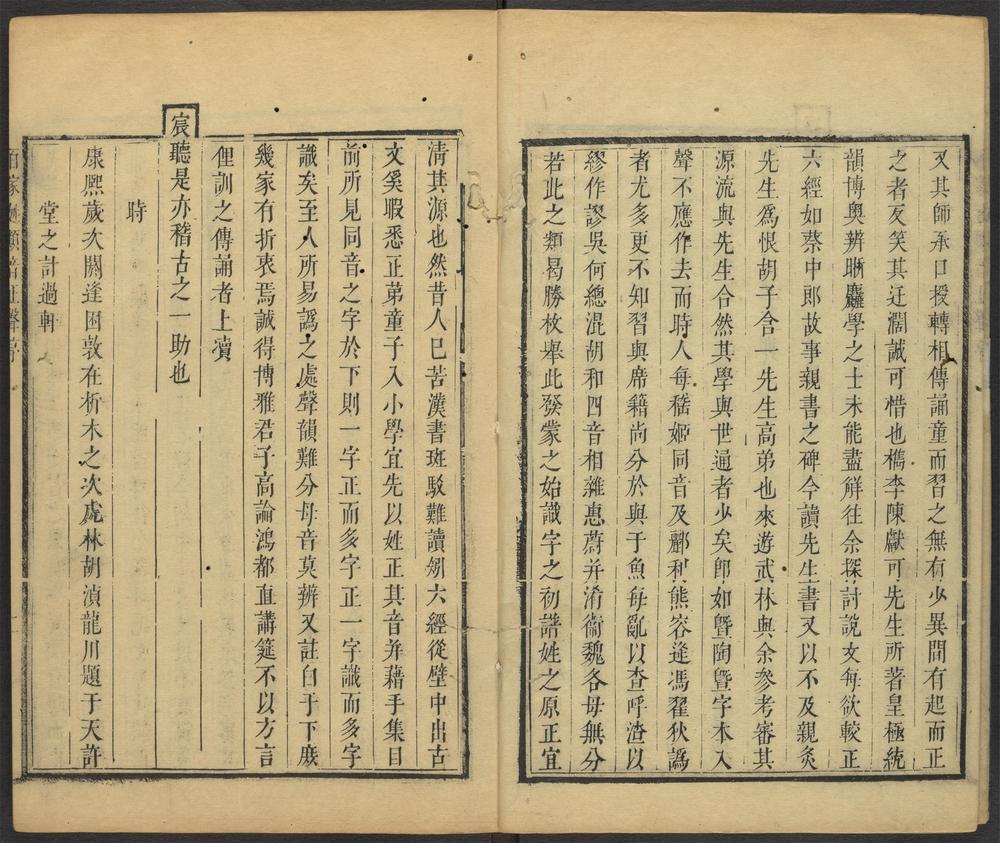 又其師承口授轉相傳誦童而習之無有少異間有起而正
之者反笑其迂濶誠可惜也檇李陳獻可先生所著皇極統
韻博奧辨晰麤學之士未能盡觧徃余探討說文每欲較正
六經如蔡中郎故事親書之碑今讀先生書又以不及親灸
先生爲恨胡子含一先生高弟也來遊武林與余參考審其
源流與先生合然其學與世通者少矣卽如曁陶曁字本入
聲不應作去而時人每嵇姬同音及酈利熊容逄馮翟狄譌
者尤多更不知習與席籍尚分於與于魚每亂以查呼渣以
繆作謬吳何總混胡和四音相雜惠蔚并淆衞魏各母無分
若此之類曷勝枚舉此發䝉之始識字之初譜姓之原正宜
清其源也然昔人巳苦漢書班駁難讀矧六經從壁中出古
文奚暇悉正第童子入小學宜先以姓正其音并藉手集目
前所見同音之字於下則一字正而多字正一字識而多字
識矣至人所易譌之處聲韻難分母音莫辨又註白于下庶
幾家有折衷焉誠得博雅君子高論鴻都直講筵不以方言
俚訓之傳誦者上瀆
宸聽是亦稽古之一助也
時
康熙歲次閼逢困敦在析木之次虎林胡湞龍川題于天許
堂之計過軒